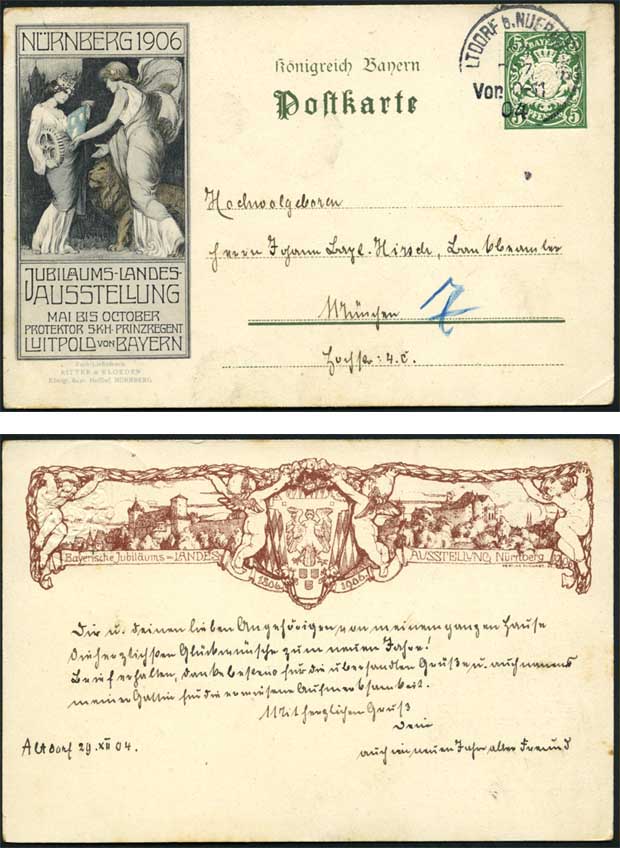 NÜRNBERG 1906
JUBILÄUMS-LANDES-
AUSSTELLUNG
MAI BIS OCTOBER
PROTEKTOR S.K.H. PRINZREGENT
LUITPOLD VON BAYERN
RITTER & KLOEDEN
NÜRNBERG
Königreich Bayern
Postkarte
LTDORF b. NUER
BAYERN
Vor
04
5 5
Hochwolgeboren
Herrn Johann Hirsch, Bankbeamter
München
7
Bayerische Jubiläums-LANDES
AUSSTELLUNG Nürnberg
1806 1906
Dir u. deinen lieben Angehörigen von meinem ganzen Hause
die herzlichsten Glückwünsche zum neuen Jahr!
Brief erhalten, danke bestens für die übersandten Grüße u. auch namens
meiner Gattin für die erwiesene Aufmerksamkeit.
Mit herzlichen Gruß
Dein
Altdorf 29. XII 04.
auch im neuen Jahr alter Freund